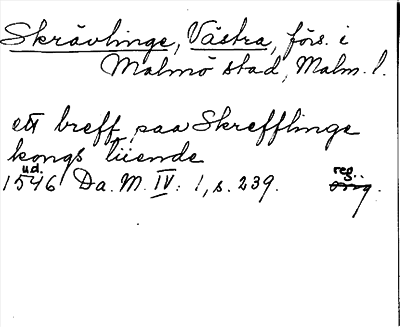 Skrävlinge, Västra, förs. i
Malmö stad, Malm. l.
ett breff paa Skrefflinge
kongs tiende
1546 ud. Da. M. IV: 1, s. 239. orig. reg.